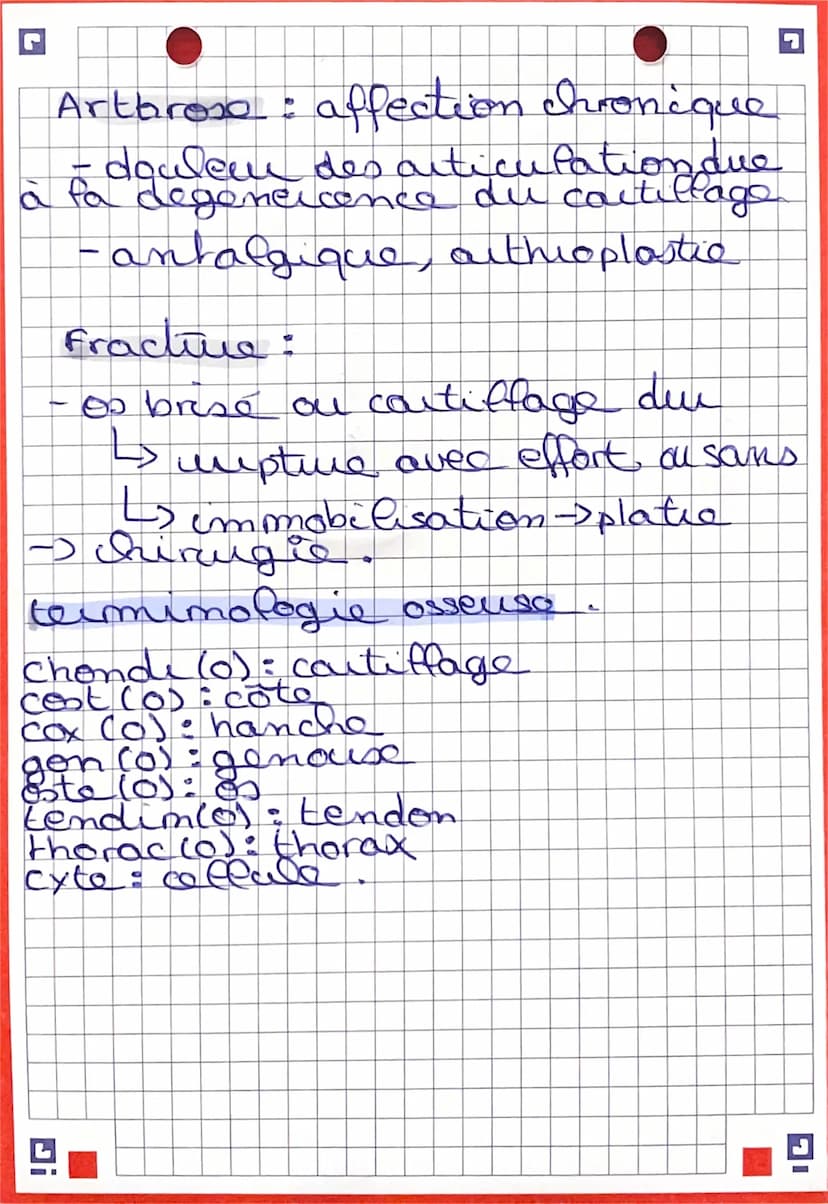 Arthrose : affection chronique
- douleur des articulation due
à la degenercence du cartillage
- antalgique, arthroplastie
Fracture :
- os brisé ou cartillage dur
↳ rupture avec effort ou sans
↳ immobilisation → platre
→ chirugie.
terminologie osseuse.
chondr (o) : cartillage
cost (o) : côte
cox (o) : hanche
gon (o) : genouse
oste (o) : os
tendim (o) : tendon
thorac (o) : thorax
cyte : cellule.